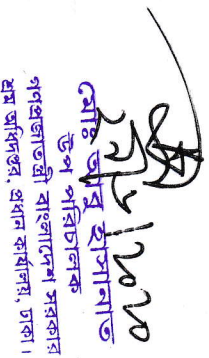 মোঃ আবু হাসানাত
উপ পরিচালক
গণপ্রজাতন্ত্রী বাংলাদেশ সরকার
শ্রম অধিদপ্তর, প্রধান কার্যালয়, ঢাকা।